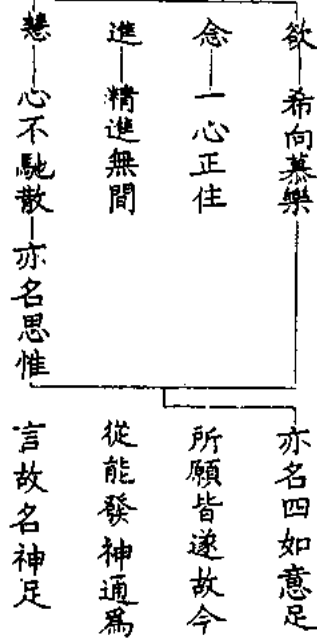 欲—希向慕樂
念—一心正住
進—精進無間
慧—心不馳散—亦名思惟
亦名四如意足
所願皆遂故今
從能發神通爲
言故名神足